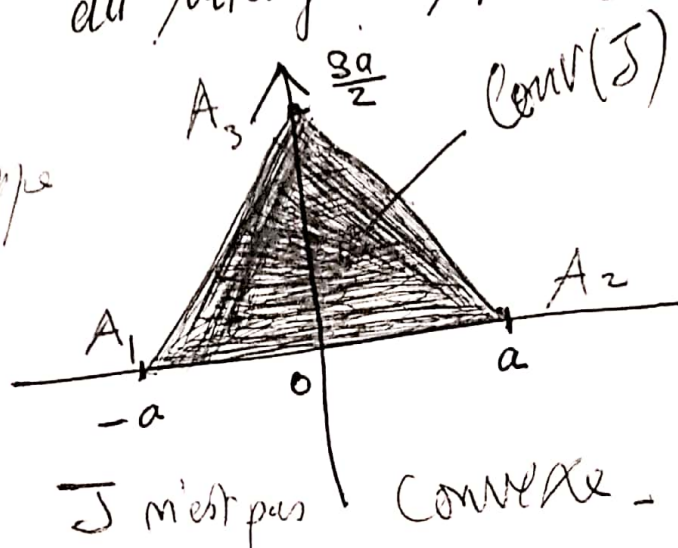 du
3a/2
Conv(J)
A3
A1
A2
-a
0
a
J n'est pas convexe.